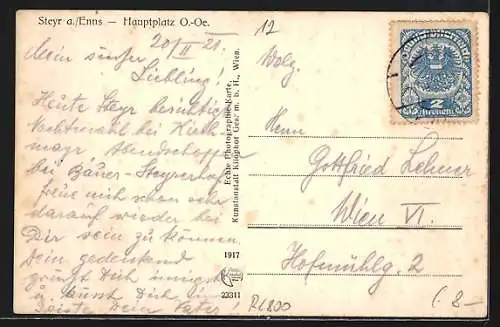 Steyr a./Enns — Hauptplatz O.-Oe.
20/II 21.
Mein süßer
Liebling!
Heute Steyr besichtigt
Nachtmahl bei
bei Bauer-Steyrerhof
freue mich schon sehr
darauf wieder bei
Dir sein zu können.
Dein gedenkend
grüßt Dich innigst
u. küsst Dich
Dein
Echte Photographie-Karte.
Kunstanstalt Kilophot Graz m. b. H., Wien.
1917
23311
12
Wolg.
2
Herrn
Gottfried Lehner
Wien VI.
Hofmühlg. 2
R(800
(.8-